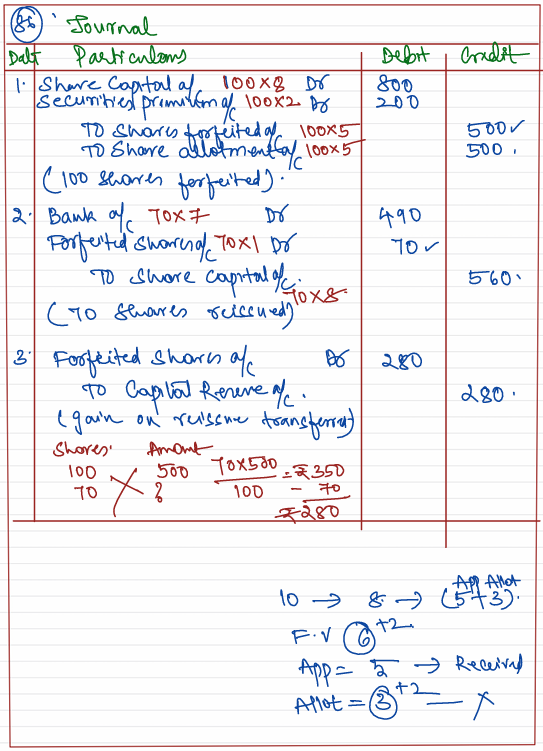 86 Journal
Date Particulars Debit Credit
1. Share Capital a/c 100×8 Dr 800
Securities premium a/c 100×2 Dr 200
To Shares forfeited a/c 100×5 500✓
To Share allotment a/c 100×5 500.
(100 shares forfeited).
2. Bank a/c 70×7 Dr 490
Forfeited Shares a/c 70×1 Dr 70✓
To Share Capital a/c. 560.
70×8.
(70 Shares reissued)
3. Forfeited Shares a/c Dr 280
To Capital Reserve a/c. 280.
(gain on reissue transferred)
Shares. Amount
100 500 70×500 = ₹350
70 ? 100 - 70
₹280
App Allot
10 → 8. → (5+3).
F.V 6 +2
App = 5 → Received
Allot = 3 +2 — ✗